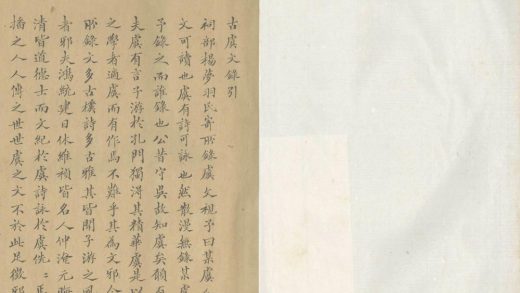 古虞文錄引
祠部楊夢羽氏寄所錄虞文視予曰某虞人
文可讀也虞有詩可詠也然散漫無錄某虞
予錄之而誰錄也公昔守吳故知虞矣願
夫虞有言子游於孔門獨得其精華虞是以
之學者適虞而有作焉不難乎其為文邪今
所錄文多古樸詩多古雅其皆聞子游之風
者邪夫鴻統建日休維禎皆名人仲淹元晦
清皆道德士而文紀於虞詩詠於虞侁侁焉
播之人人傳之世世虞之文不於此足徵邪